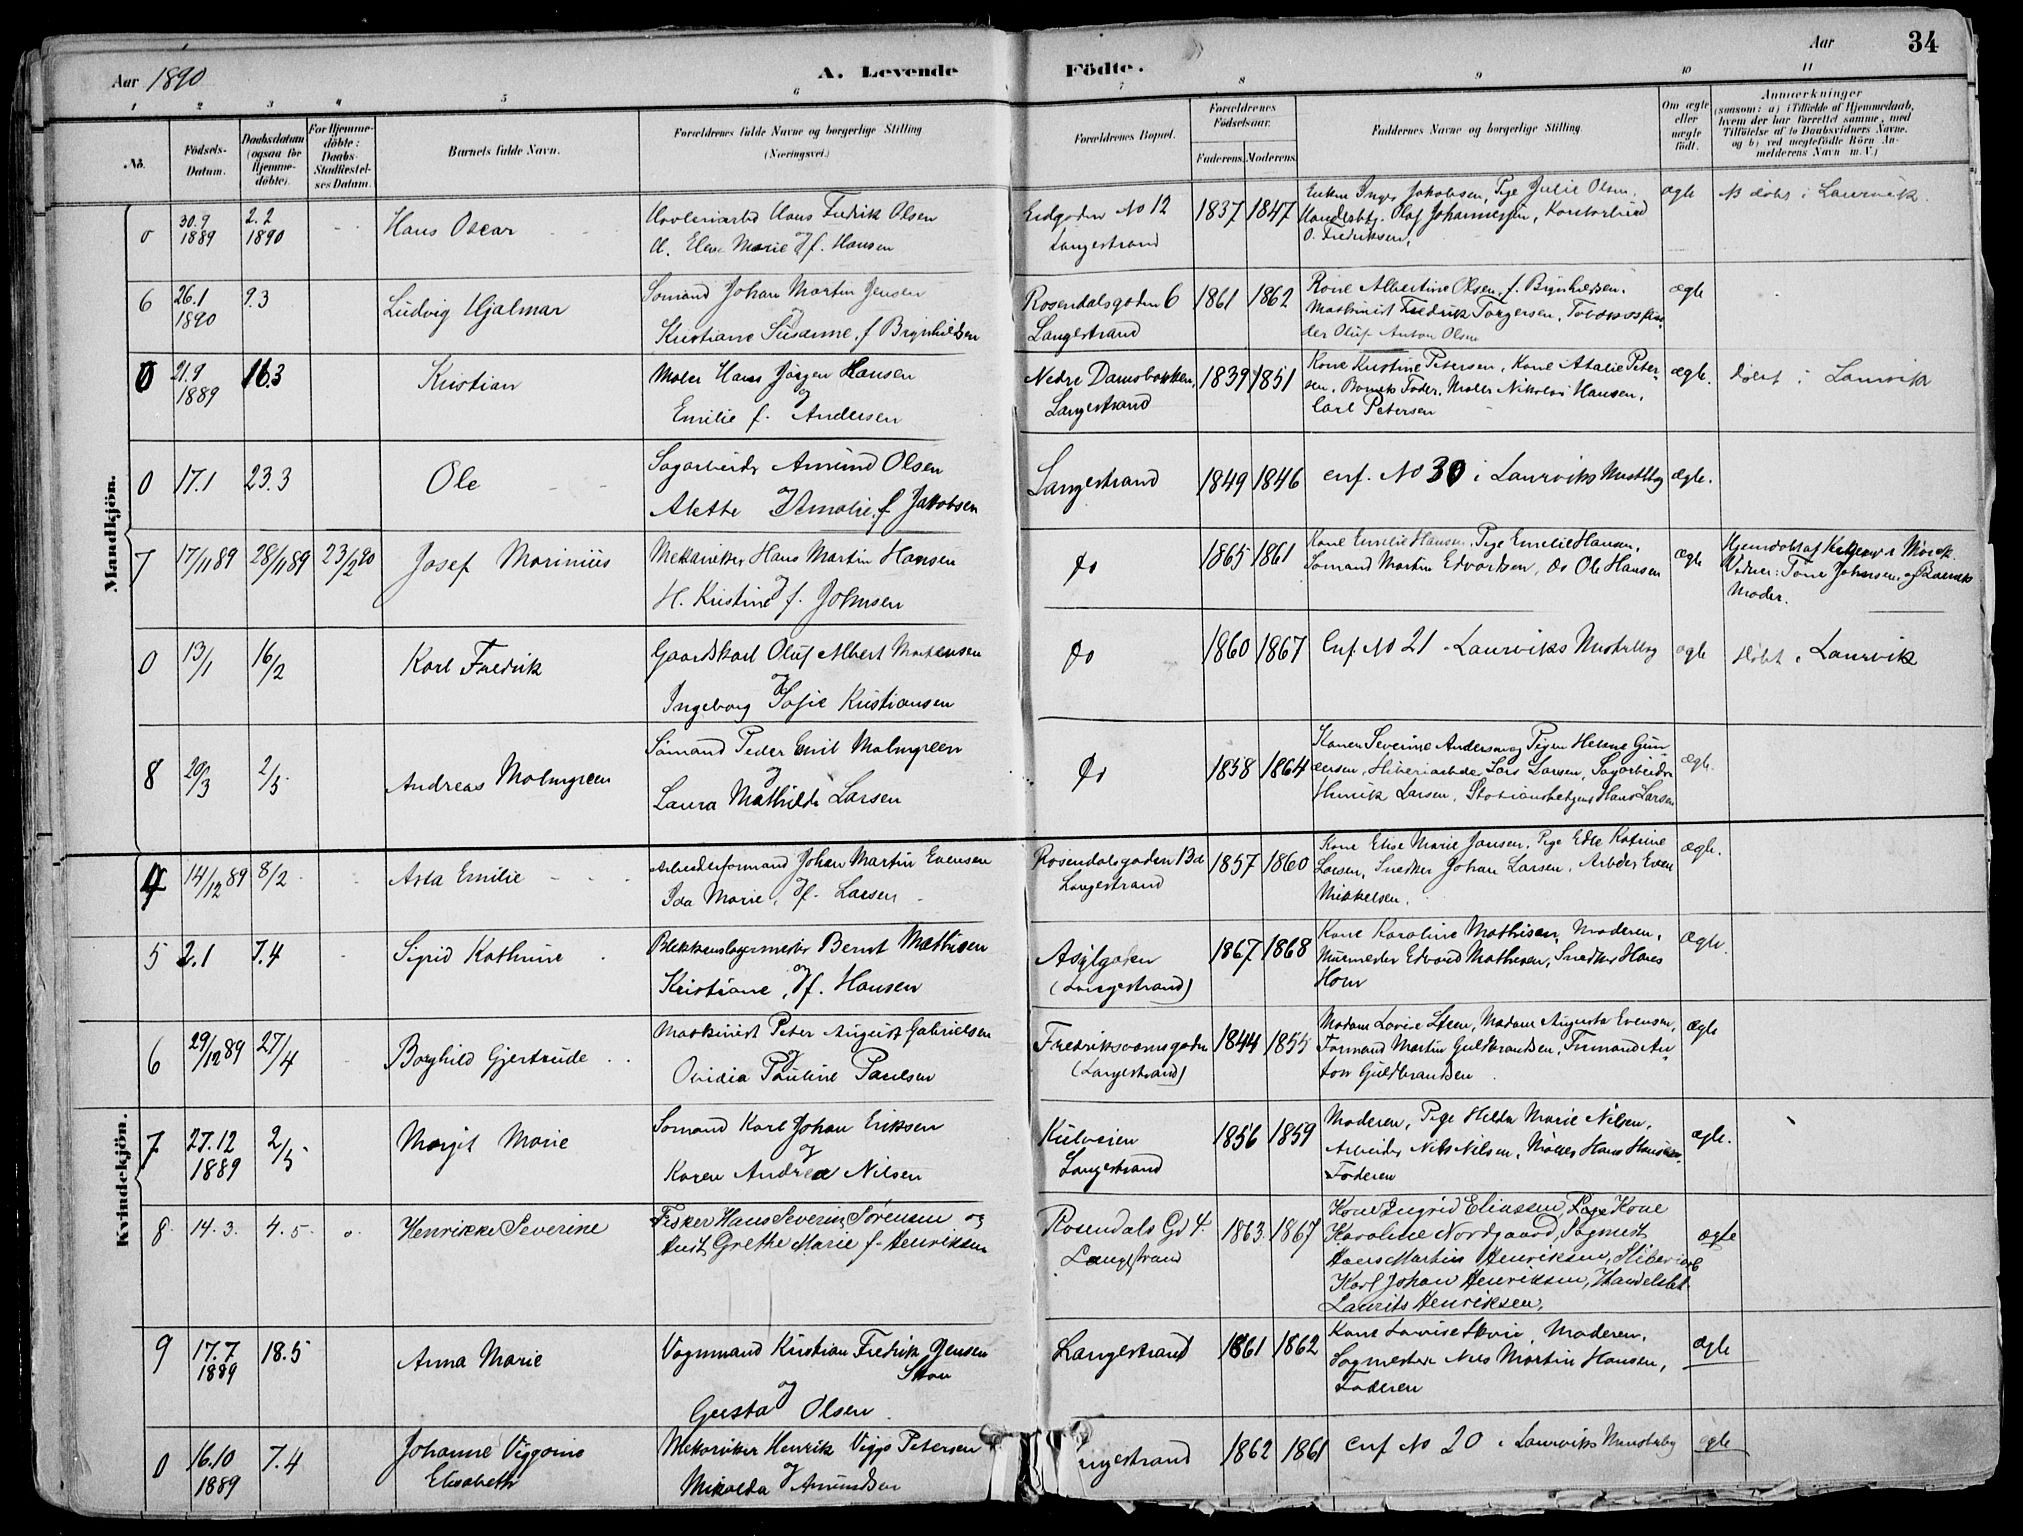 Aar 1890
A. Levende Födte.
Aar
34
1 2 3 4 5 6 7 8 9 10 11
No.
Födsels-Datum.
Daabsdatum (ogsaa for Hjemmedöbte).
For Hjemmedöbte: Daabs-Stadfæstelses Datum.
Barnets fulde Navn.
Forældrenes fulde Navne og borgerlige Stilling (Næringsvei.)
Forældrenes Bopæl.
Forældrenes Födselsaar.
Faderens. Moderens.
Faddernes Navne og borgerlige Stilling.
Om ægte eller uægte födt.
Anmærkninger
(saasom: a) i Tilfælde af Hjemmedaab, hvem der har forrettet samme, med Tilföielse af to Daabsvidners Navne, og b) ved uægtefödte Börn Anmelderens Navn m. V.)
Mandkjön.
0 30.9 1889 2.2 1890 Hans Oscar Hans Fredrik Olsen
Marie f. Hansen
No 12 Langestrand 1837 1847 Enken Inger Jakobsen, Pige Julie Olsen,
Olaf Johannessen,
O. Fredriksen,
ægte döbt i Laurvik.
6 26.1 1890 9.3 Ludvig Hjalmar Sömand Johan Martin Jensen
og
Kristiane Susanne f. Brynhildsen
Rosendalsgaden 6 Langestrand 1861 1862 Kone Albertine Olsen, f. Brynhildsen,
Maskinist Fredrik Torgersen, Tobaksspin-
der Oluf Anton Olsen
ægte
0 21.9 1889 16.3 Kristian Maler Hans Jörgen Hansen
og
Emilie f. Andersen
Nedre Damsbakken, Langestrand 1839 1851 Kone Kristine Petersen, Kone Atalie Peter-
sen, Barnets Fader, Maler Nikolai Hansen,
Carl Petersen
ægte. döbt i Laurvik
0 17.1 23.3 Ole Sagarbeider Amund Olsen
og
Alette Amalie f. Jakobsen
Langestrand 1849 1846 Cnf. No 30 i Laurviks Mselbog ægte.
7 17/11 89 28/11 89 23/2 90 Josef Marinius Mekaniker Hans Martin Hansen
og
H. Kristine f. Johnsen
do 1865 1861 Kone Emilie Hansen, Pige Emilie Hansen,
Sömand Martin Edvardsen, do Ole Hansen
ægte Hjemdöbt af
Vidner: Tone Johnsen og Barnets
Moder.
0 13/1 16/2 Karl Fredrik Gaardskarl Oluf Albert Mortensen
og
Ingeborg Sofie Kristiansen
do 1860 1867 Cnf. No 21 Laurviks ægte döbt i Laurvik
8 20/3 2/5 Andreas Malmgreen Sömand Peder Emil Malmgreen
og
Laura Mathilde Larsen
do 1858 1864 Konen Severine Andersen og Pigen Helene Gun-
ersen, Lars Larsen, Sagarbeider
Henrik Larsen, Hans Larsen
ægte.
Kvindekjön.
4 14/12 89 8/2 Asta Emilie Arbeiderformand Johan Martin Evensen
og
Ida Marie, f. Larsen
Rosendalsgaden 13a Langestrand 1857 1860 Kone Elise Marie Jansen, Pige Edle Katrine
Larsen, Snedker Johan Larsen, Arbeider Even
Mikkelsen.
ægte.
5 2.1 7.4 Sigrid Kathrine Blikkenslagermester Bernt Mathisen
og
Kristiane, f. Hansen
Asylgaden (Langestrand) 1867 1868 Kone Karoline Mathisen, Moderen,
Murmester Edvard Mathisen, Snedker Hans
ægte.
6 29/12 89 27/4 Borghild Gjertrude Maskinist Peter August Gabrielsen
og
Ovidia Pauline Paulsen
(Langestrand) 1844 1855 Madam Lovise Steen, Madam Augusta Evensen,
Formand Martin Guldbrandsen, Formand An-
ton Guldbrandsen
ægte
7 27.12 1889 2/5 Margit Marie Sömand Karl Johan Eriksen
og
Karen Andrea Nilsen
Langestrand 1856 1859 Moderen, Pige Hilda Marie Nilsen,
Arbeider Nils Nilsen, Hans Hansen,
Faderen
ægte.
8. 14.3. 4.5. Henrikke Severine Fisker Hans Severin Sörensen og
Hust. Grethe Marie f. Henriksen
Rosendals Gd 4. Langestrand 1863. 1867 Kone Ingrid Eliassen, Kone
Karoline Nordgaard, Sagmest.
Hans Martin Henriksen,
Karl Johan Henriksen, Handelsbet.
Laurits Henriksen,
ægte
9 17.7 1889 18.5 Anna Marie Vognmand Kristian Fredrik Jensen
Skou
og
Gusta Olsen
Langestrand 1861 1862 Kone Lovise Skou, Moderen,
Sagmester Nils Martin Hansen,
Faderen
ægte
0 16.10 1889 7.4 Johanne Viggoine
Elisabeth
Mekaniker Henrik Viggo Petersen
og
Amundsen
Langestrand 1862 1861 Cnf No 20 i Laurviks ægte